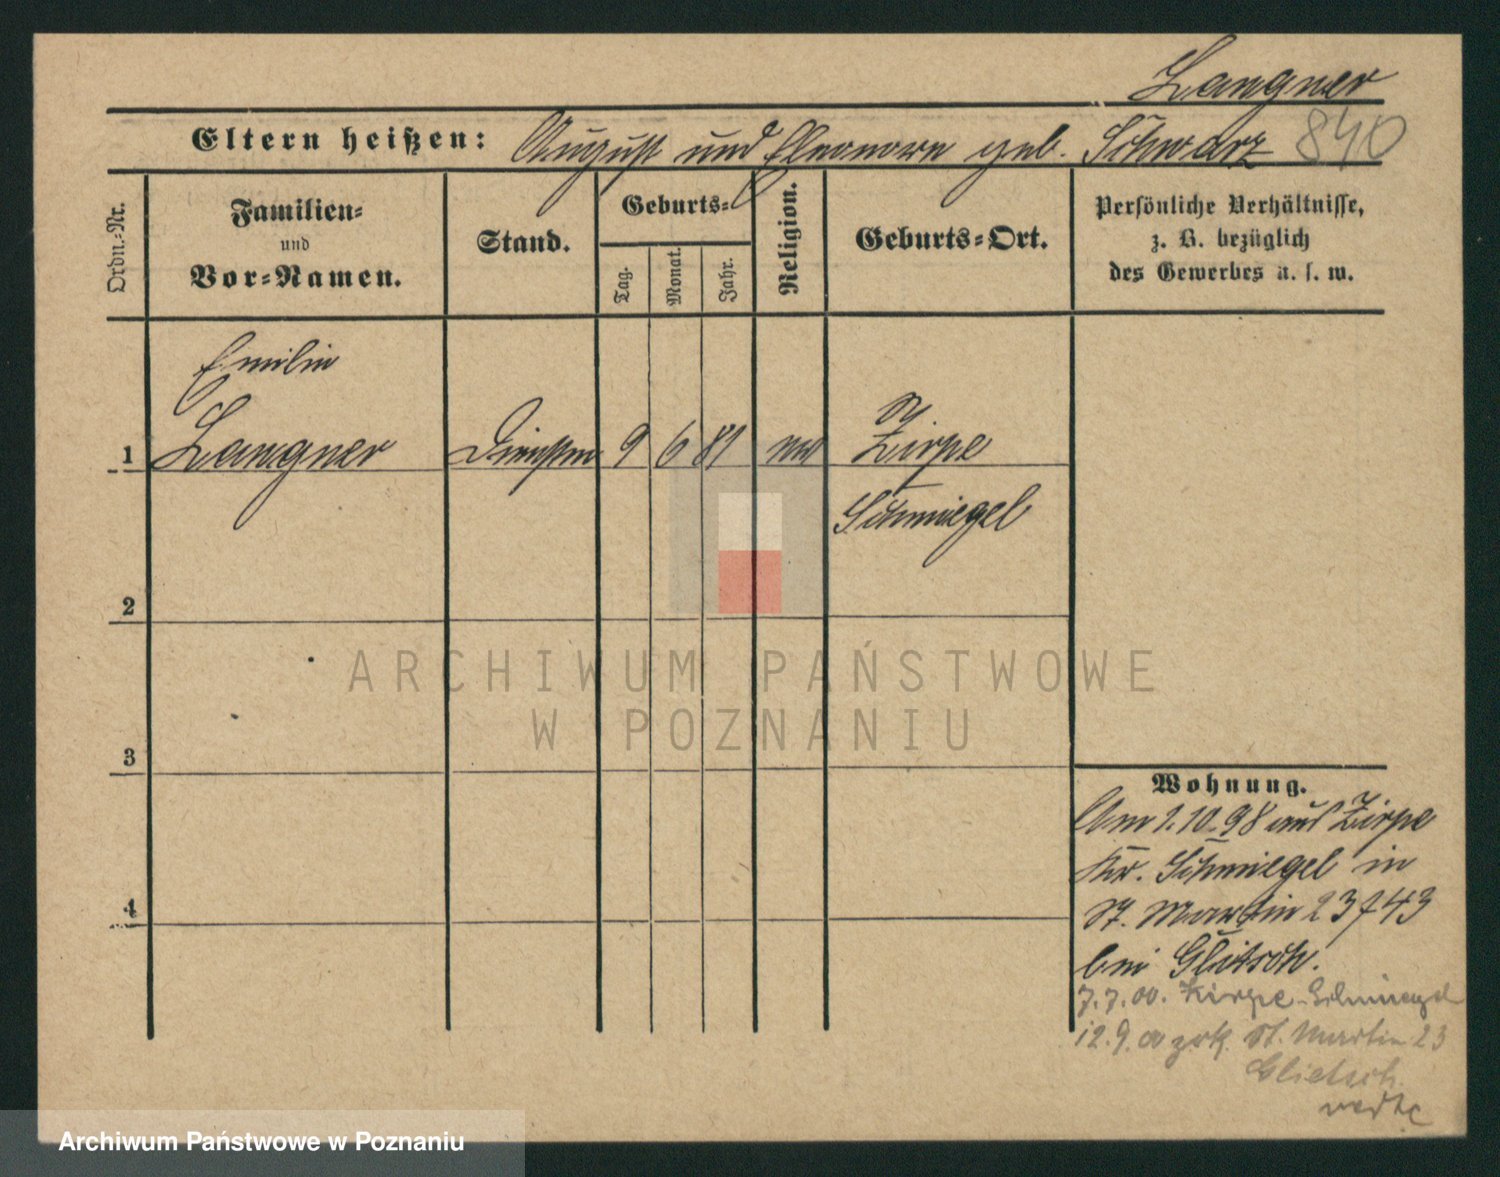 Langner
840
Eltern heißen: August und Eleonore geb. Schwarz
Ordn.-Nr.
Familien-
und
Vor-Namen.
Stand.
Geburts-
Tag.
Monat.
Jahr.
Religion.
Geburts-Ort.
Persönliche Verhältnisse,
z. B. bezüglich
des Gewerbes u. s. w.
Emilie
1 Langner Dienstm 9 6 81 Zirpe
Schmiegel
2
3
4
ARCHIWUM PAŃSTWOWE
W POZNANIU
Wohnung.
Am 1.10.98 aus Zirpe
Kr. Schmiegel in
St. Martin 23 / 43
bei Glietsch.
7.7.00. Zirpe-Schmiegel
12.9.00 zrk. St. Martin 23
Glietsch
Archiwum Państwowe w Poznaniu